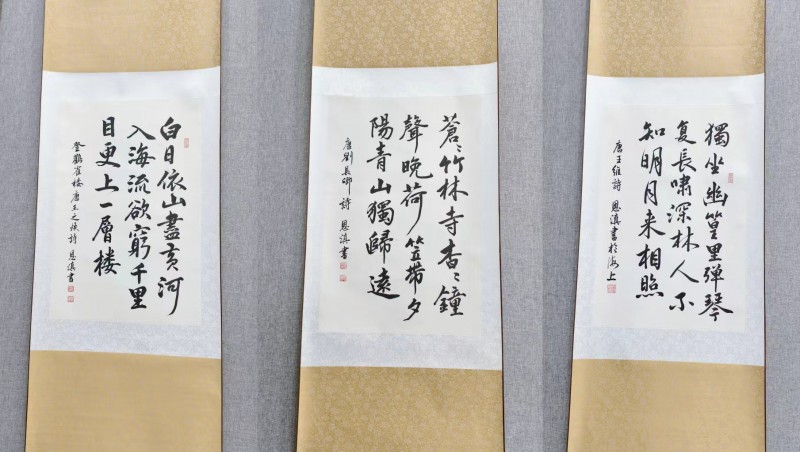 白日依山盡黄河
入海流欲窮千里
目更上一層楼
登鸛雀楼 唐王之渙詩 恩滇書
蒼〻竹林寺杳〻鐘
聲晚荷笠帶夕
陽青山獨歸遠
唐劉長卿詩 恩滇書
獨坐幽篁里弹琴
复長嘯深林人不
知明月来相照
唐王維詩 恩滇書於海上